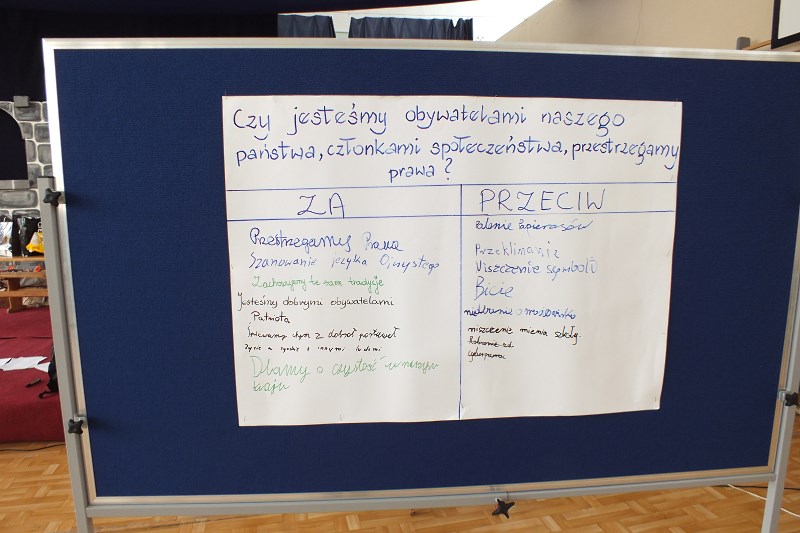 Czy jesteśmy obywatelami naszego
państwa, członkami społeczeństwa, przestrzegamy
prawa?
ZA
PRZECIW
Przestrzegamy Prawa
Szanowanie języka Ojczystego
Zachowujemy te same tradycje
jesteśmy dobrymi obywatelami
Patriota
Śpiewamy hymn z dobrą postawą
Życie w zgodzie z innymi ludźmi
Dbamy o czystość w naszym
kraju
Palenie Papierosów
Przeklinanie
Niszczenie symboli
Bicie
niedbanie o środowisko
niszczenie mienia szkoły.